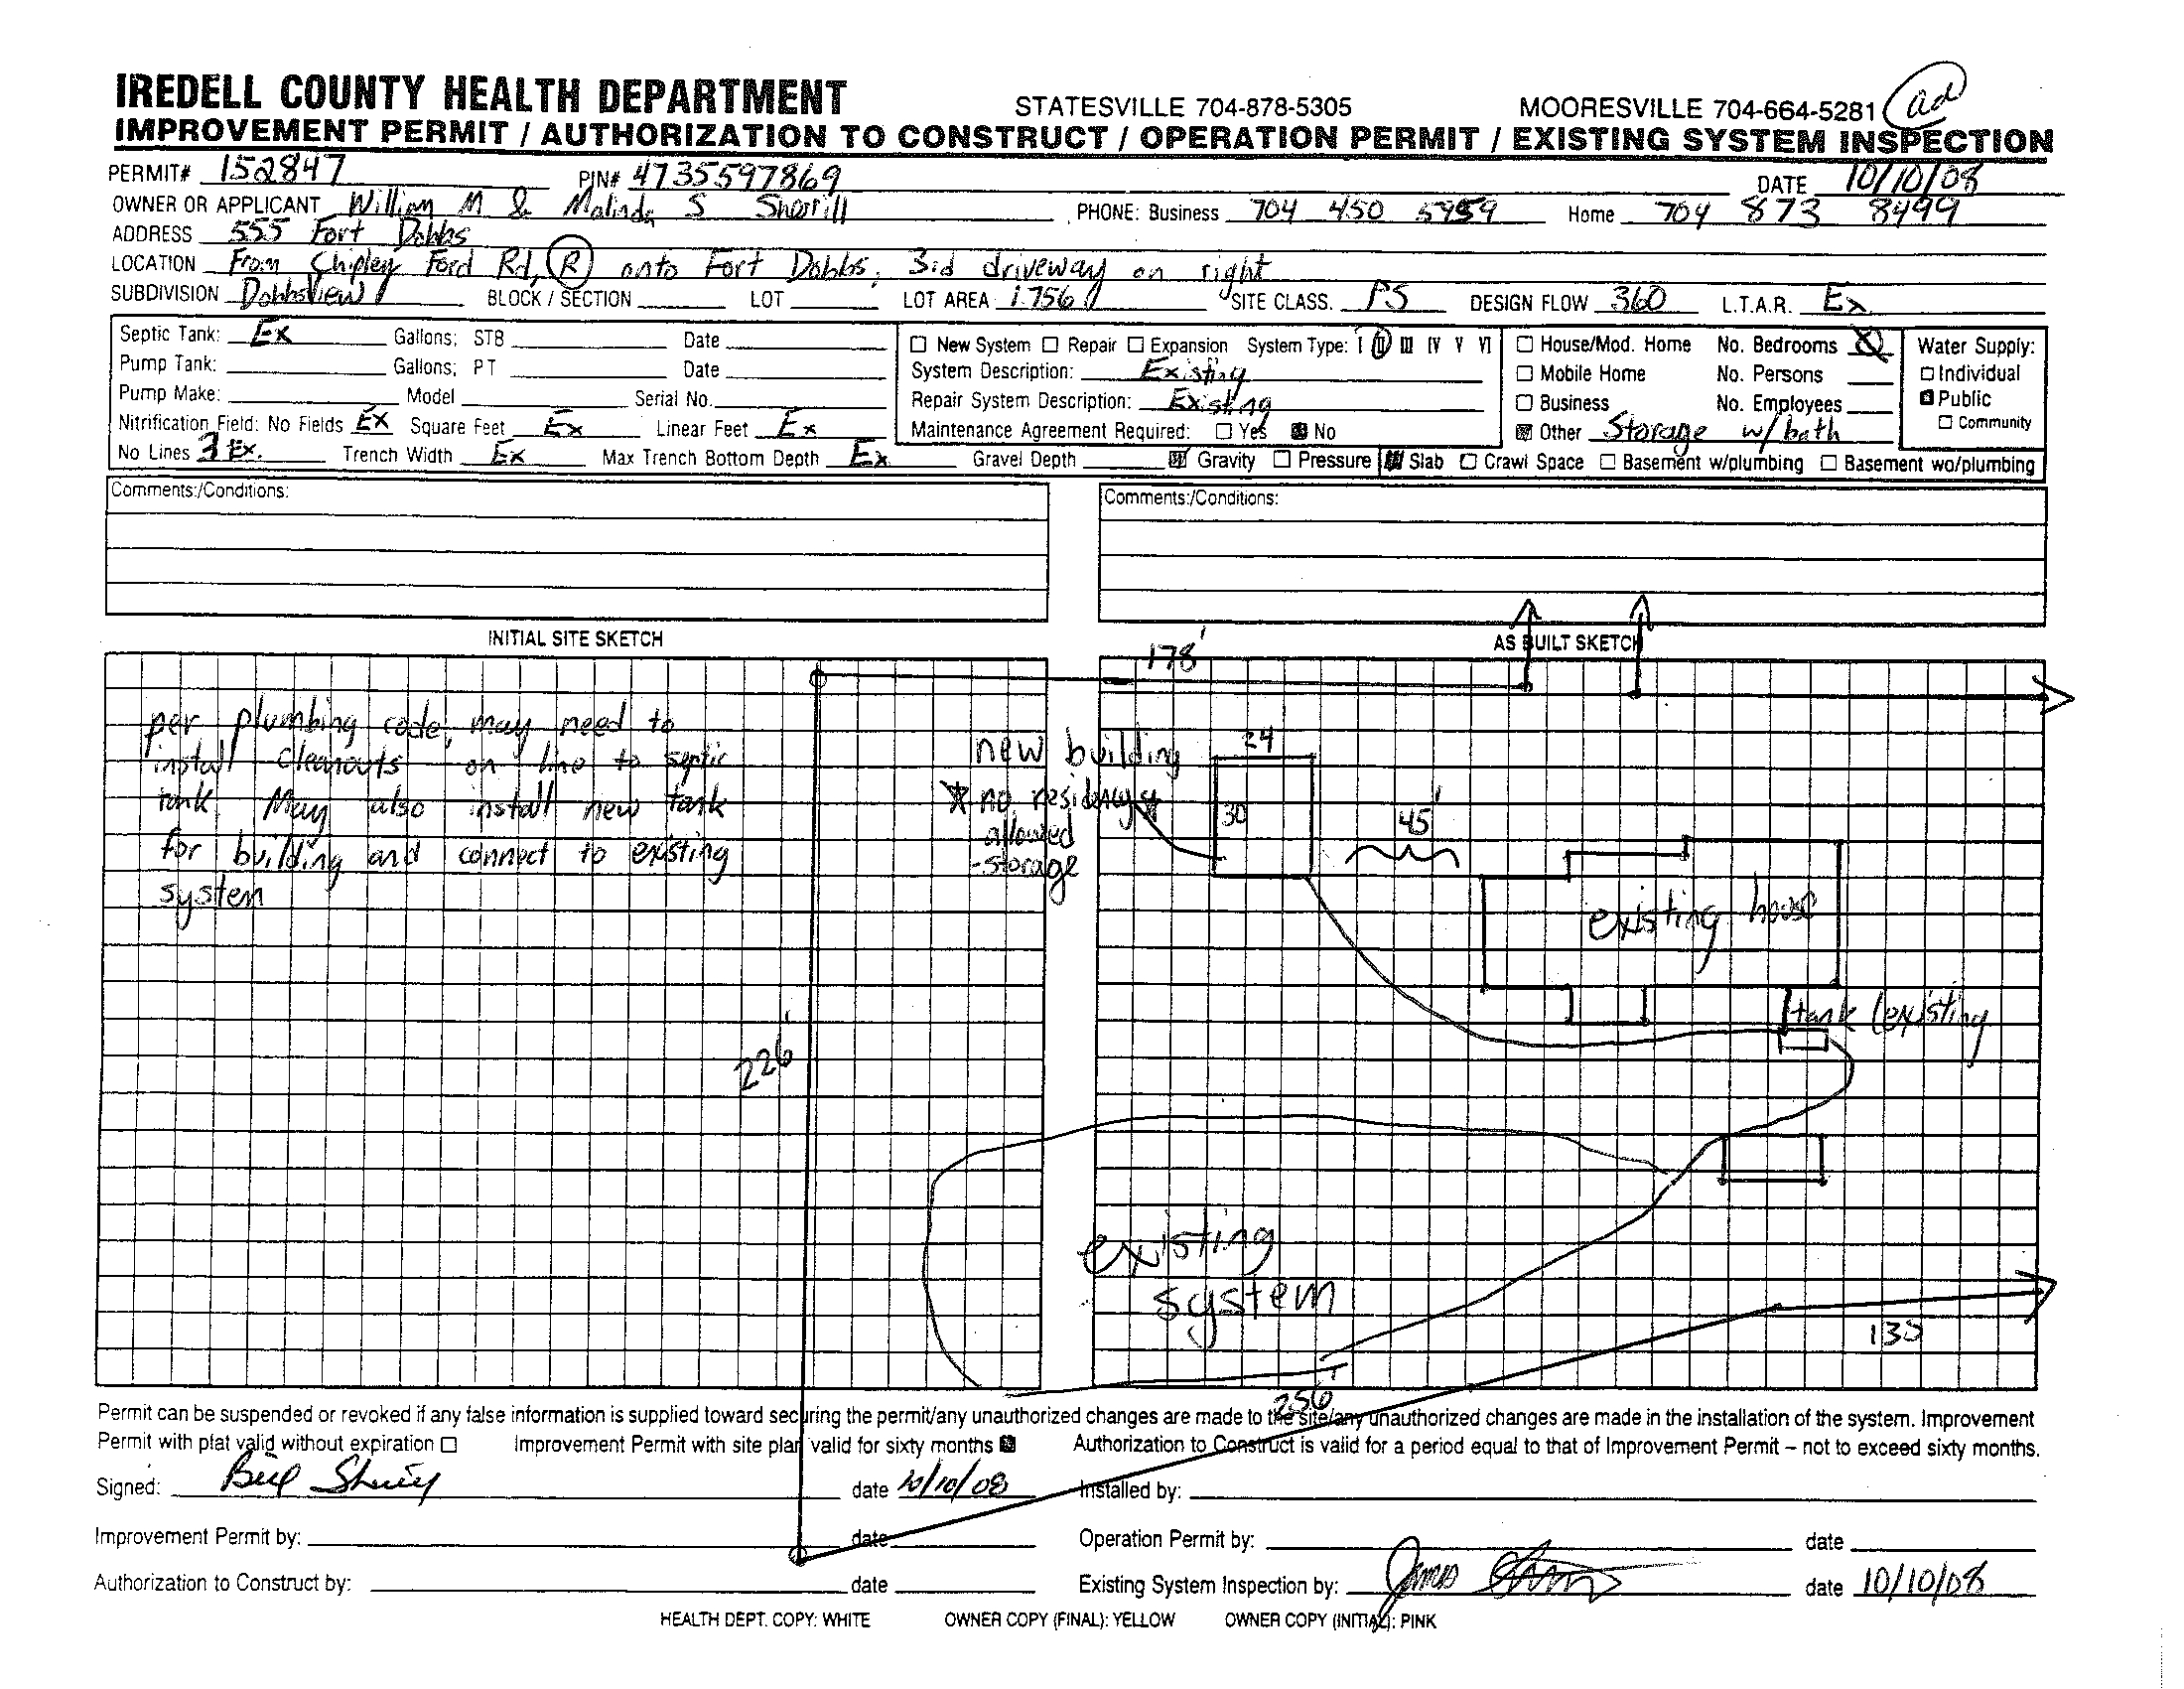 IREDELL COUNTY HEALTH DEPARTMENT STATESVILLE 704-878-5305 MOORESVILLE 704-664-5281 ad
IMPROVEMENT PERMIT / AUTHORIZATION TO CONSTRUCT / OPERATION PERMIT / EXISTING SYSTEM INSPECTION
PERMIT# 152847 PIN# 4735597869 DATE 10/10/08
OWNER OR APPLICANT William M & Malinda S Sherrill PHONE: Business 704 450 5959 Home 704 873 8499
ADDRESS 555 Fort Dobbs
LOCATION From Chipley Ford Rd, R onto Fort Dobbs, 3rd driveway on right
SUBDIVISION Dobbsview BLOCK / SECTION LOT LOT AREA 1.756 SITE CLASS. PS DESIGN FLOW 360 L.T.A.R. Ex
Septic Tank: Ex Gallons; STB Date
Pump Tank: Gallons; PT Date
Pump Make: Model Serial No.
Nitrification Field: No Fields Ex Square Feet Ex Linear Feet Ex
No Lines 3 Ex. Trench Width Ex Max Trench Bottom Depth Ex Gravel Depth Gravity Pressure Slab Crawl Space Basement w/plumbing Basement wo/plumbing
New System Repair Expansion System Type: I II III IV V VI
System Description: Existing
Repair System Description: Existing
Maintenance Agreement Required: Yes No
House/Mod. Home No. Bedrooms
Mobile Home No. Persons
Business No. Employees
Other Storage w/bath
Water Supply:
Individual
Public
Community
Comments:/Conditions:
Comments:/Conditions:
INITIAL SITE SKETCH
AS BUILT SKETCH
per plumbing code, may need to
install cleanouts on line to septic
tank. May also install new tank
for building and connect to existing
system
178'
new building
* no residency *
allowed
-storage
24
30
45'
existing house
tank (existing
226'
existing
system
130
256'
Permit can be suspended or revoked if any false information is supplied toward securing the permit/any unauthorized changes are made to the site/any unauthorized changes are made in the installation of the system. Improvement
Permit with plat valid without expiration Improvement Permit with site plan valid for sixty months Authorization to Construct is valid for a period equal to that of Improvement Permit – not to exceed sixty months.
Signed: Bill Sherrill date 10/10/08 Installed by:
Improvement Permit by: date Operation Permit by: date
Authorization to Construct by: date Existing System Inspection by: James date 10/10/08
HEALTH DEPT. COPY: WHITE OWNER COPY (FINAL): YELLOW OWNER COPY (INITIAL): PINK